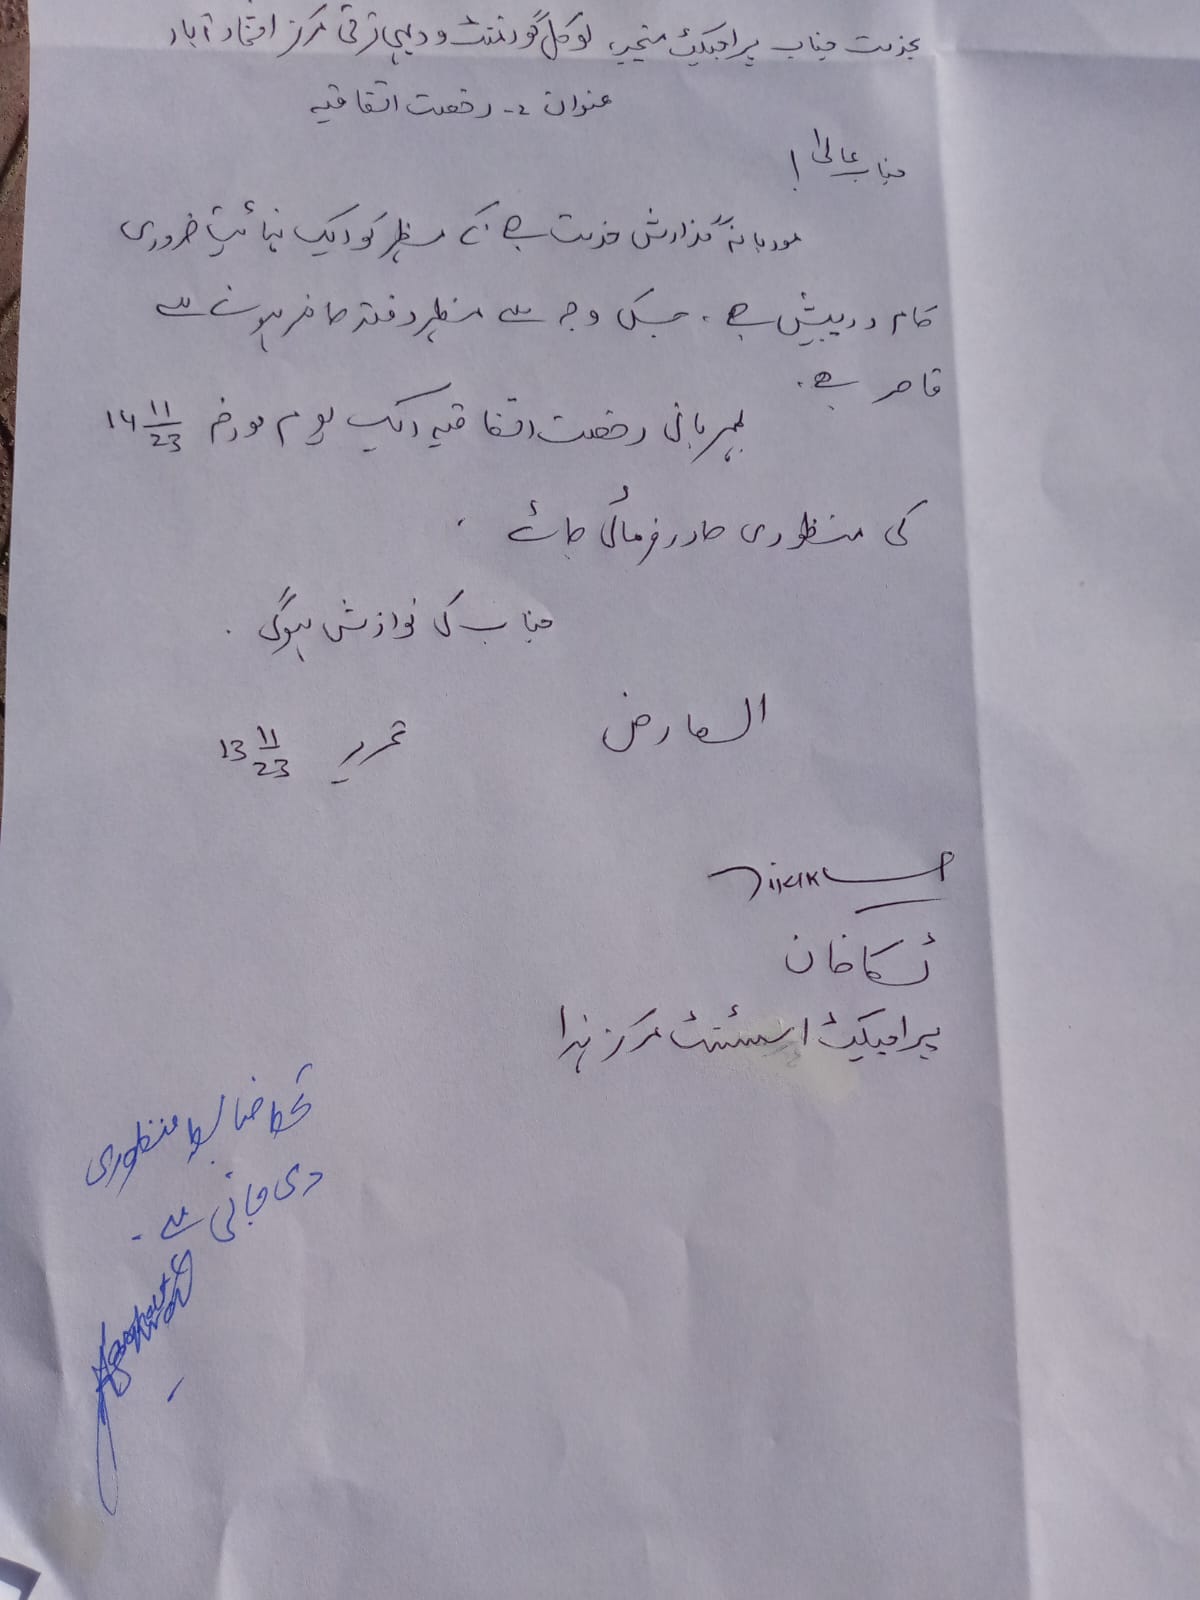 بخدمت جناب پراجیکٹ منیجر، لوکل گورنمنٹ و دیہی ترقی مرکز افتخار آباد
عنوان :- رخصت اتفاقیہ
جناب عالی!
مودبانہ گذارش خدمت ہے کہ مظہر کو ایک نہائیت ضروری
کام درپیش ہے۔ جسکی وجہ سے مظہر دفتر حاضر ہونے سے
قاصر ہے۔
بمہربانی رخصت اتفاقیہ ایک یوم مورخہ 14 11/23
کی منظوری صادر فرمائی جائے۔
جناب کی نوازش ہوگی۔
العارض
تحریر 13 11/23
خان
پراجیکٹ اسسٹنٹ مرکز ہذا
تحت ضابطہ منظوری
دی جاتی ہے۔